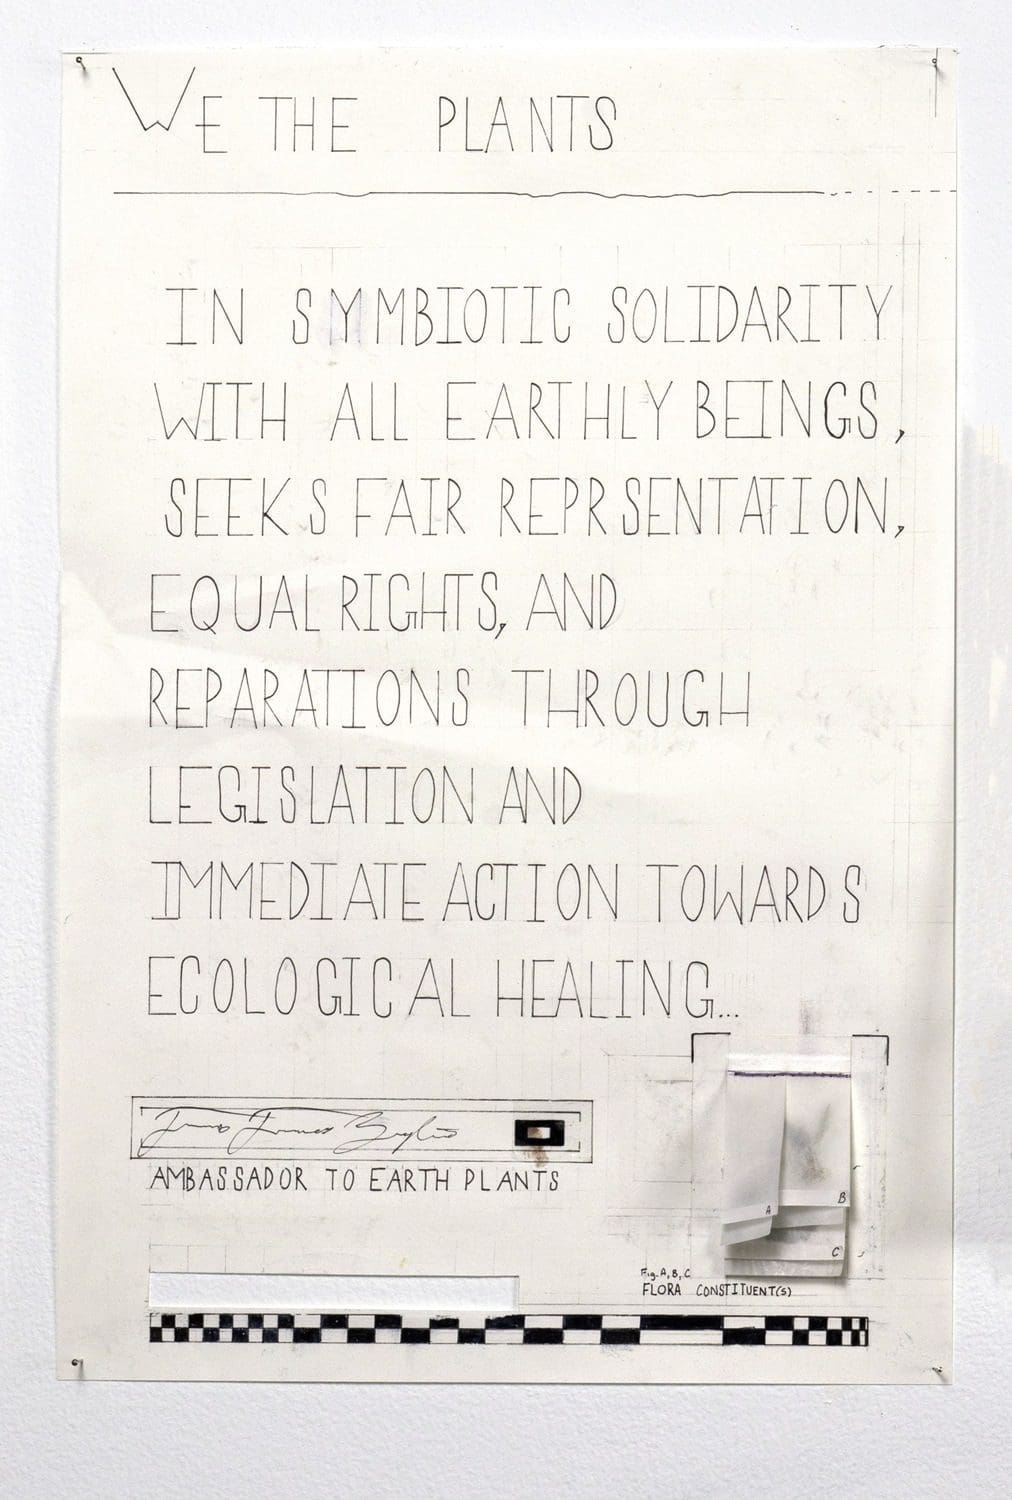 WE THE PLANTS
IN SYMBIOTIC SOLIDARITY
WITH ALL EARTHLY BEINGS,
SEEKS FAIR REPRSENTATION,
EQUAL RIGHTS, AND
REPARATIONS THROUGH
LEGISLATION AND
IMMEDIATE ACTION TOWARDS
ECOLOGICAL HEALING...
AMBASSADOR TO EARTH PLANTS
A
B
C
Fig. A, B, C
FLORA CONSTITUENT(S)